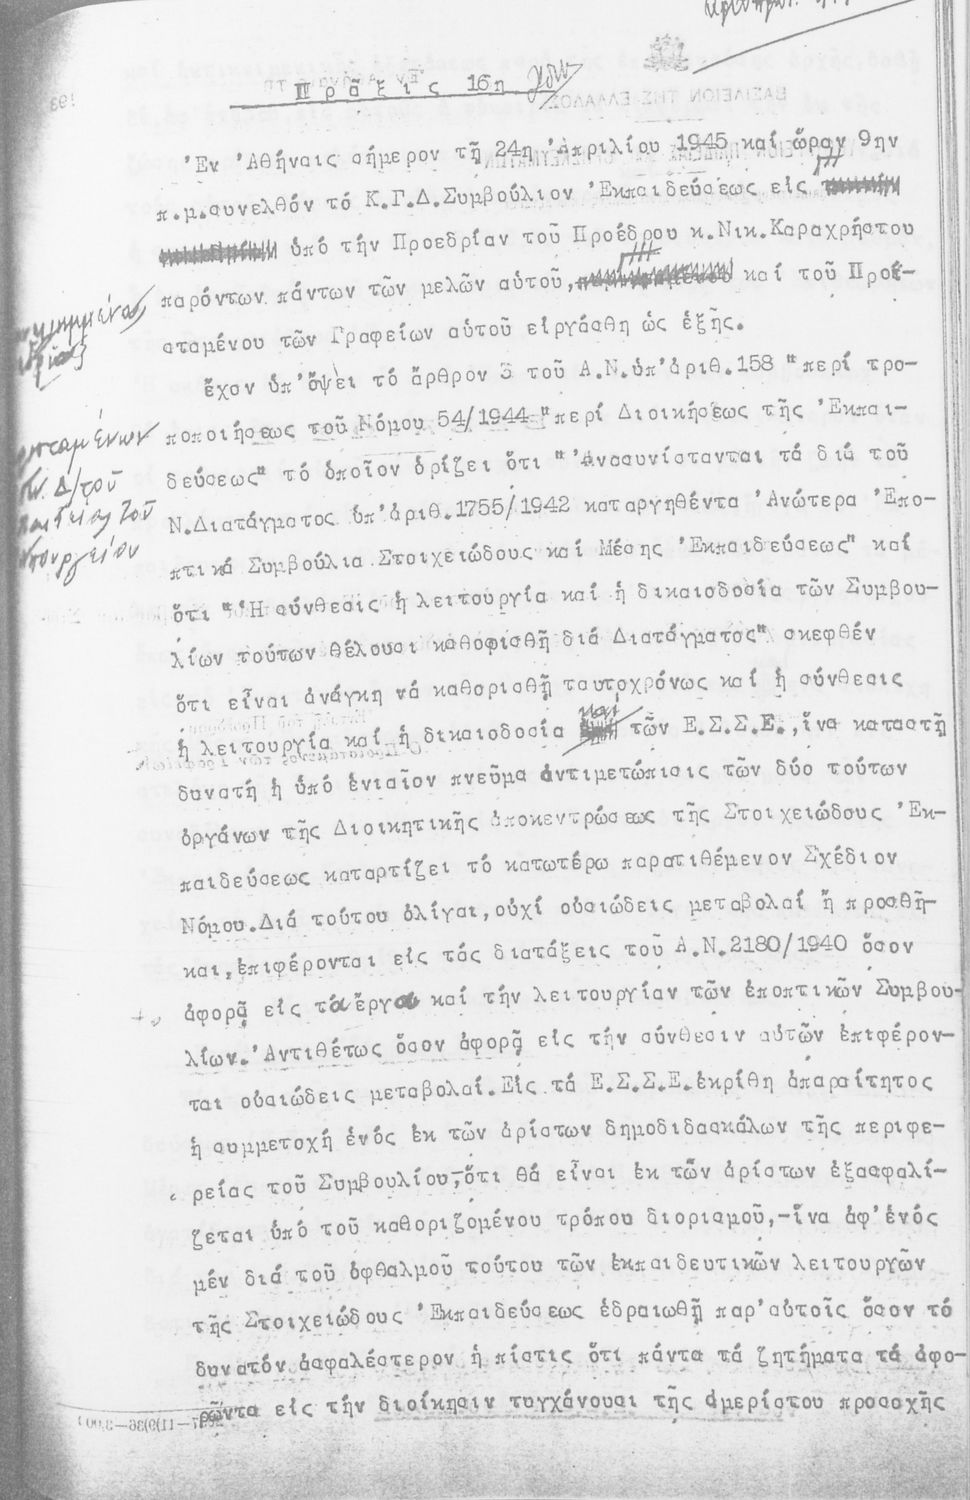 Πρᾶξις 16η
Ἐν Ἀθήναις σήμερον τῇ 24ῃ Ἀπριλίου 1945 καί ὥραν 9ην
π.μ.συνελθόν τό Κ.Γ.Δ.Συμβούλιον Ἐκπαιδεύσεως εἰς
ὑπό τήν Προεδρίαν τοῦ Προέδρου κ.Νικ.Καραχρήστου
παρόντων πάντων τῶν μελῶν αὐτοῦ, καί τοῦ Προϊ-
σταμένου τῶν Γραφείων αὐτοῦ εἰργάσθη ὡς ἑξῆς.
ἔχον ὑπ'ὄψει τό ἄρθρον 3 τοῦ Α.Ν.ὑπ'ἀριθ.158 "περί τρο-
ποποιήσεως τοῦ Νόμου 54/1944 "περί Διοικήσεως τῆς Ἐκπαι-
δεύσεως" τό ὁποῖον ὁρίζει ὅτι "Ἀνασυνίστανται τά διά τοῦ
Ν.Διατάγματος ὑπ'ἀριθ.1755/1942 καταργηθέντα Ἀνώτερα Ἐπο-
πτικά Συμβούλια Στοιχειώδους καί Μέσης Ἐκπαιδεύσεως" καί
ὅτι "Ἡ σύνθεσις ἡ λειτουργία καί ἡ δικαιοδοσία τῶν Συμβου-
λίων τούτων θέλουσι καθορισθῆ διά Διατάγματος" σκεφθέν
ὅτι εἶναι ἀνάγκη νά καθορισθῇ ταυτοχρόνως καί ἡ σύνθεσις
ἡ λειτουργία καί ἡ δικαιοδοσία καί τῶν Ε.Σ.Σ.Ε.,ἵνα καταστῇ
δυνατή ἡ ὑπό ἑνιαῖον πνεῦμα ἀντιμετώπισις τῶν δύο τούτων
ὀργάνων τῆς Διοικητικῆς ἀποκεντρώσεως τῆς Στοιχειώδους Ἐκ-
παιδεύσεως καταρτίζει τό κατωτέρω παρατιθέμενον Σχέδιον
Νόμου.Διά τούτου ὀλίγαι,οὐχί οὐσιώδεις μεταβολαί ἤ προσθῆ-
και,ἐπιφέρονται εἰς τάς διατάξεις τοῦ Α.Ν.2180/1940 ὅσον
ἀφορᾷ εἰς τά ἔργα καί τήν λειτουργίαν τῶν ἐποπτικῶν Συμβου-
λίων.Ἀντιθέτως ὅσον ἀφορᾷ εἰς τήν σύνθεσιν αὐτῶν ἐπιφέρον-
ται οὐσιώδεις μεταβολαί.Εἰς τά Ε.Σ.Σ.Ε.ἐκρίθη ἀπαραίτητος
ἡ συμμετοχή ἑνός ἐκ τῶν ἀρίστων δημοδιδασκάλων τῆς περιφε-
ρείας τοῦ Συμβουλίου,-ὅτι θά εἶναι ἐκ τῶν ἀρίστων ἐξασφαλί-
ζεται ὑπό τοῦ καθοριζομένου τρόπου διορισμοῦ,-ἵνα ἀφ'ἑνός
μέν διά τοῦ ὀφθαλμοῦ τούτου τῶν ἐκπαιδευτικῶν λειτουργῶν
τῆς Στοιχειώδους Ἐκπαιδεύσεως ἑδραιωθῇ παρ'αὐτοῖς ὅσον τό
δυνατόν ἀσφαλέστερον ἡ πίστις ὅτι πάντα τά ζητήματα τά ἀφο-
ρῶντα εἰς τήν διοίκησιν τυγχάνουσι τῆς ἀμερίστου προσοχῆς